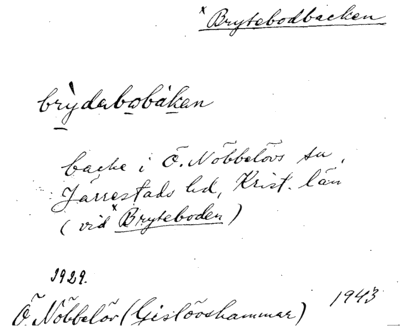 ×Brytebodbacken
brỳdabobákan
backe i Ö. Nöbbelövs sn,
Järrestads hd, Krist. län
(vid ×Bryteboden)
1929.
Ö. Nöbbelöv (Gislövshammar) 1943